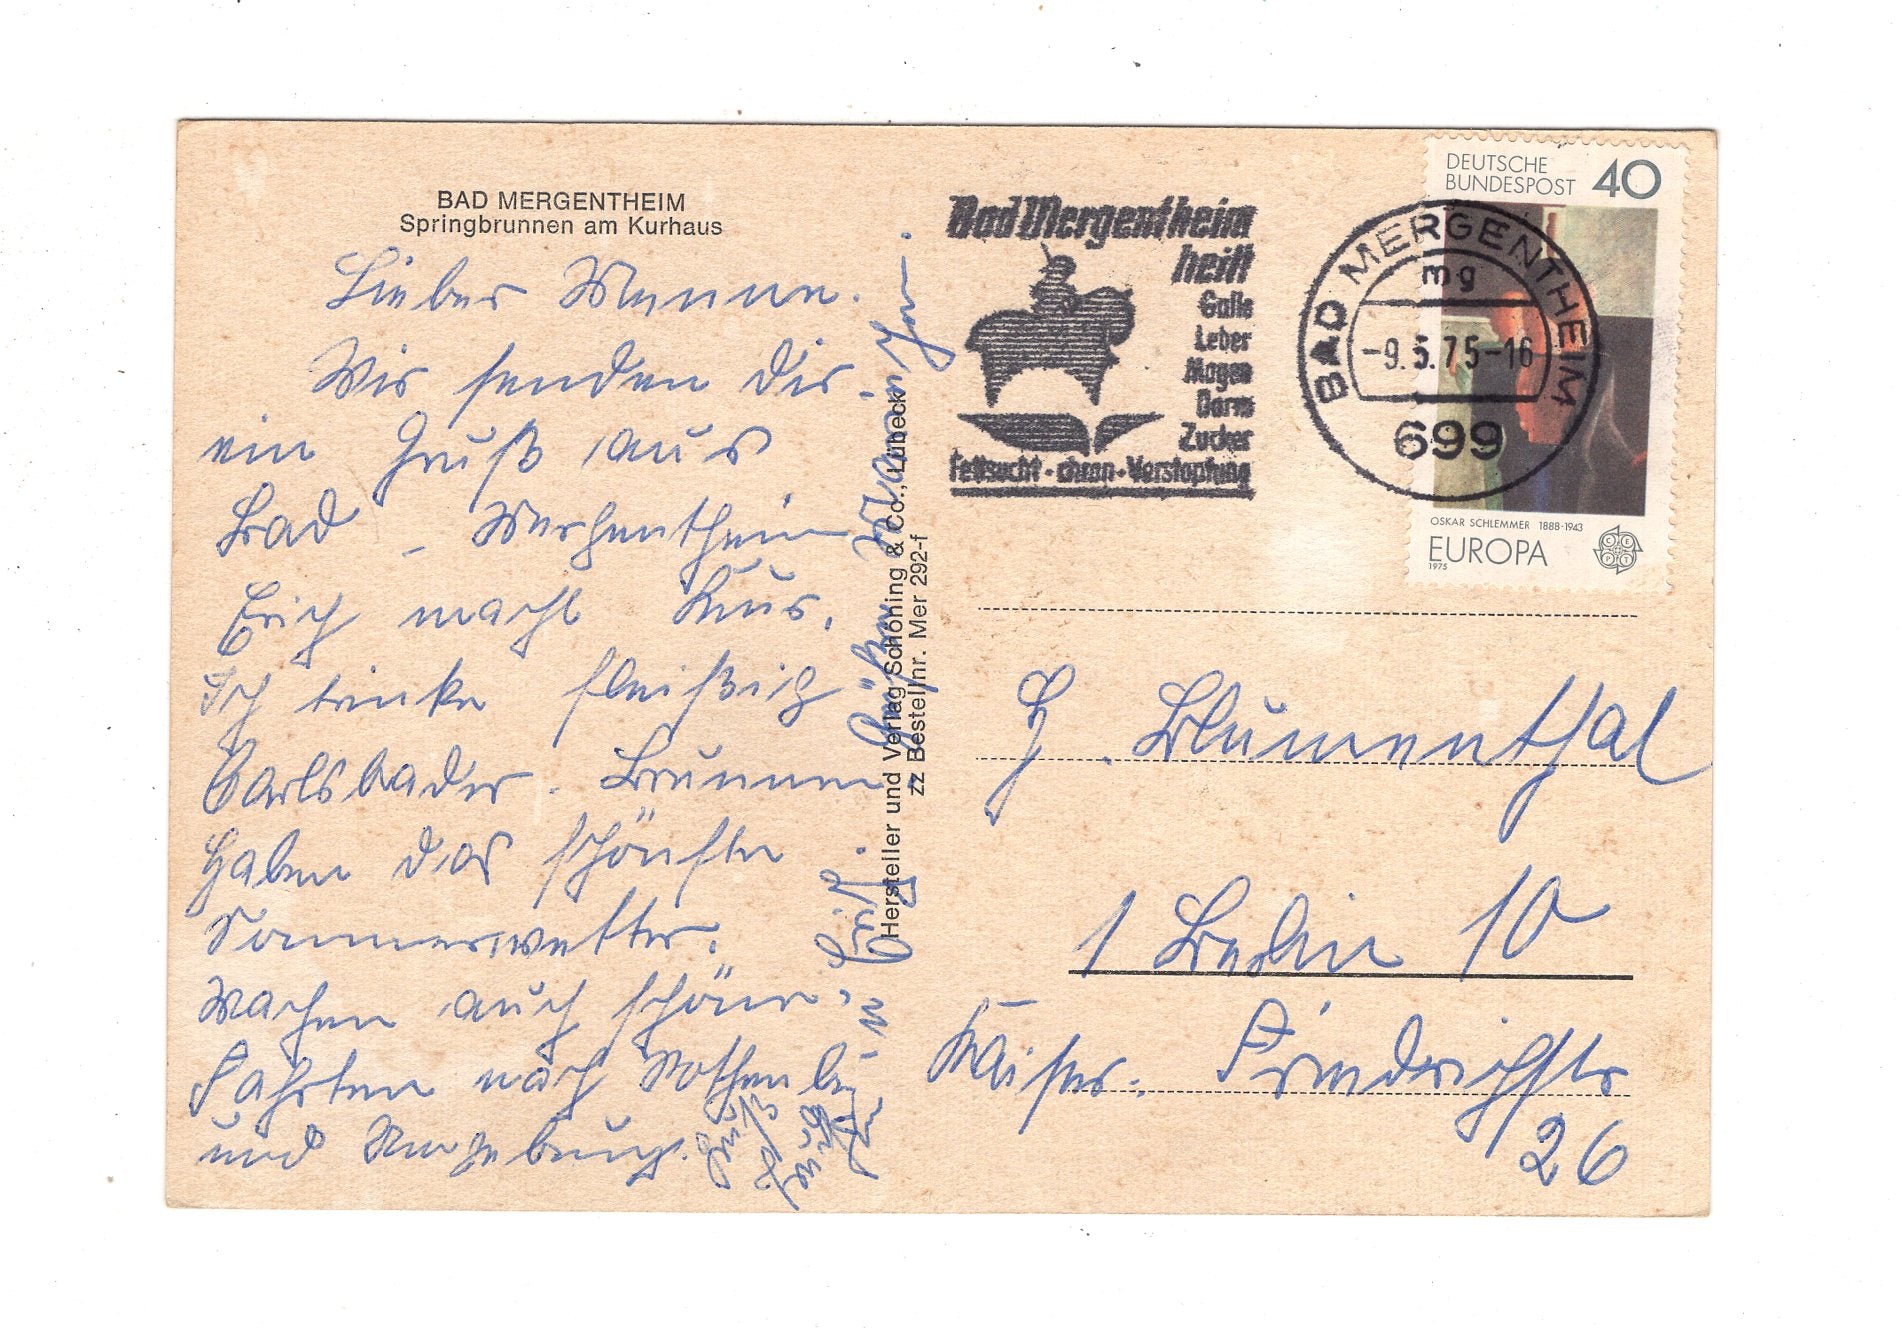 BAD MERGENTHEIM
Springbrunnen am Kurhaus
Lieber Manne.
Wir senden dir
ein Gruß aus
Bad – Merhentheim
Erich macht Kur.
Ich trinke fleißig
Carlsbader. Brunnen
Haben das schönste
Sommerwetter.
Machen auch schöne
Fahrten nach Rothenburg
und Umgebung.
Grüße
Erich
Hersteller und Verlag Schöning & Co., Lübeck
zz Bestellnr. Mer 292-f
Bad Mergentheim
heilt
Galle
Leber
Magen
Darm
Zucker
Fettsucht · chron · Verstopfung
BAD MERGENTHEIM
mg
-9.5.75-16
699
DEUTSCHE
BUNDESPOST 40
OSKAR SCHLEMMER 1888-1943
EUROPA
1975
CEPT
H. Blumenthal
1 Berlin 10
Kaiser. Friedrichstr
26